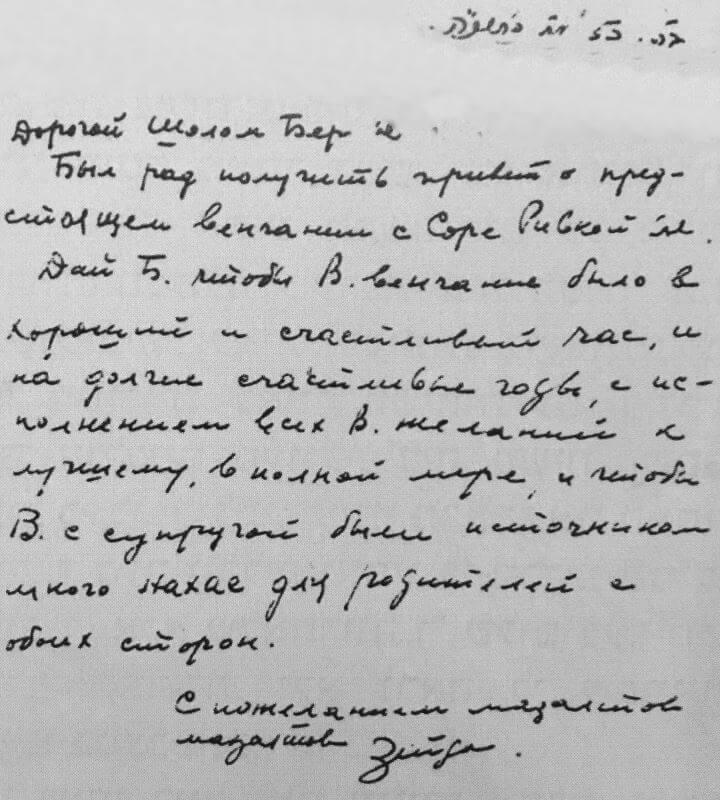 Дорогой Шолом Бер 'че
Был рад получить привет о пред-
стоящем венчании с Соре Ривкой 'че.
Дай Б. чтобы В. венчание было в
хороший и счастливый час, и
на долгие счастливые годы, с ис-
полнением всех В. желаний к
лучшему, в полной мере, и чтобы
В. с супругой были источником
много нахас для родителей с
обоих сторон.
С пожеланием мазалтов
мазалтов Зейде.